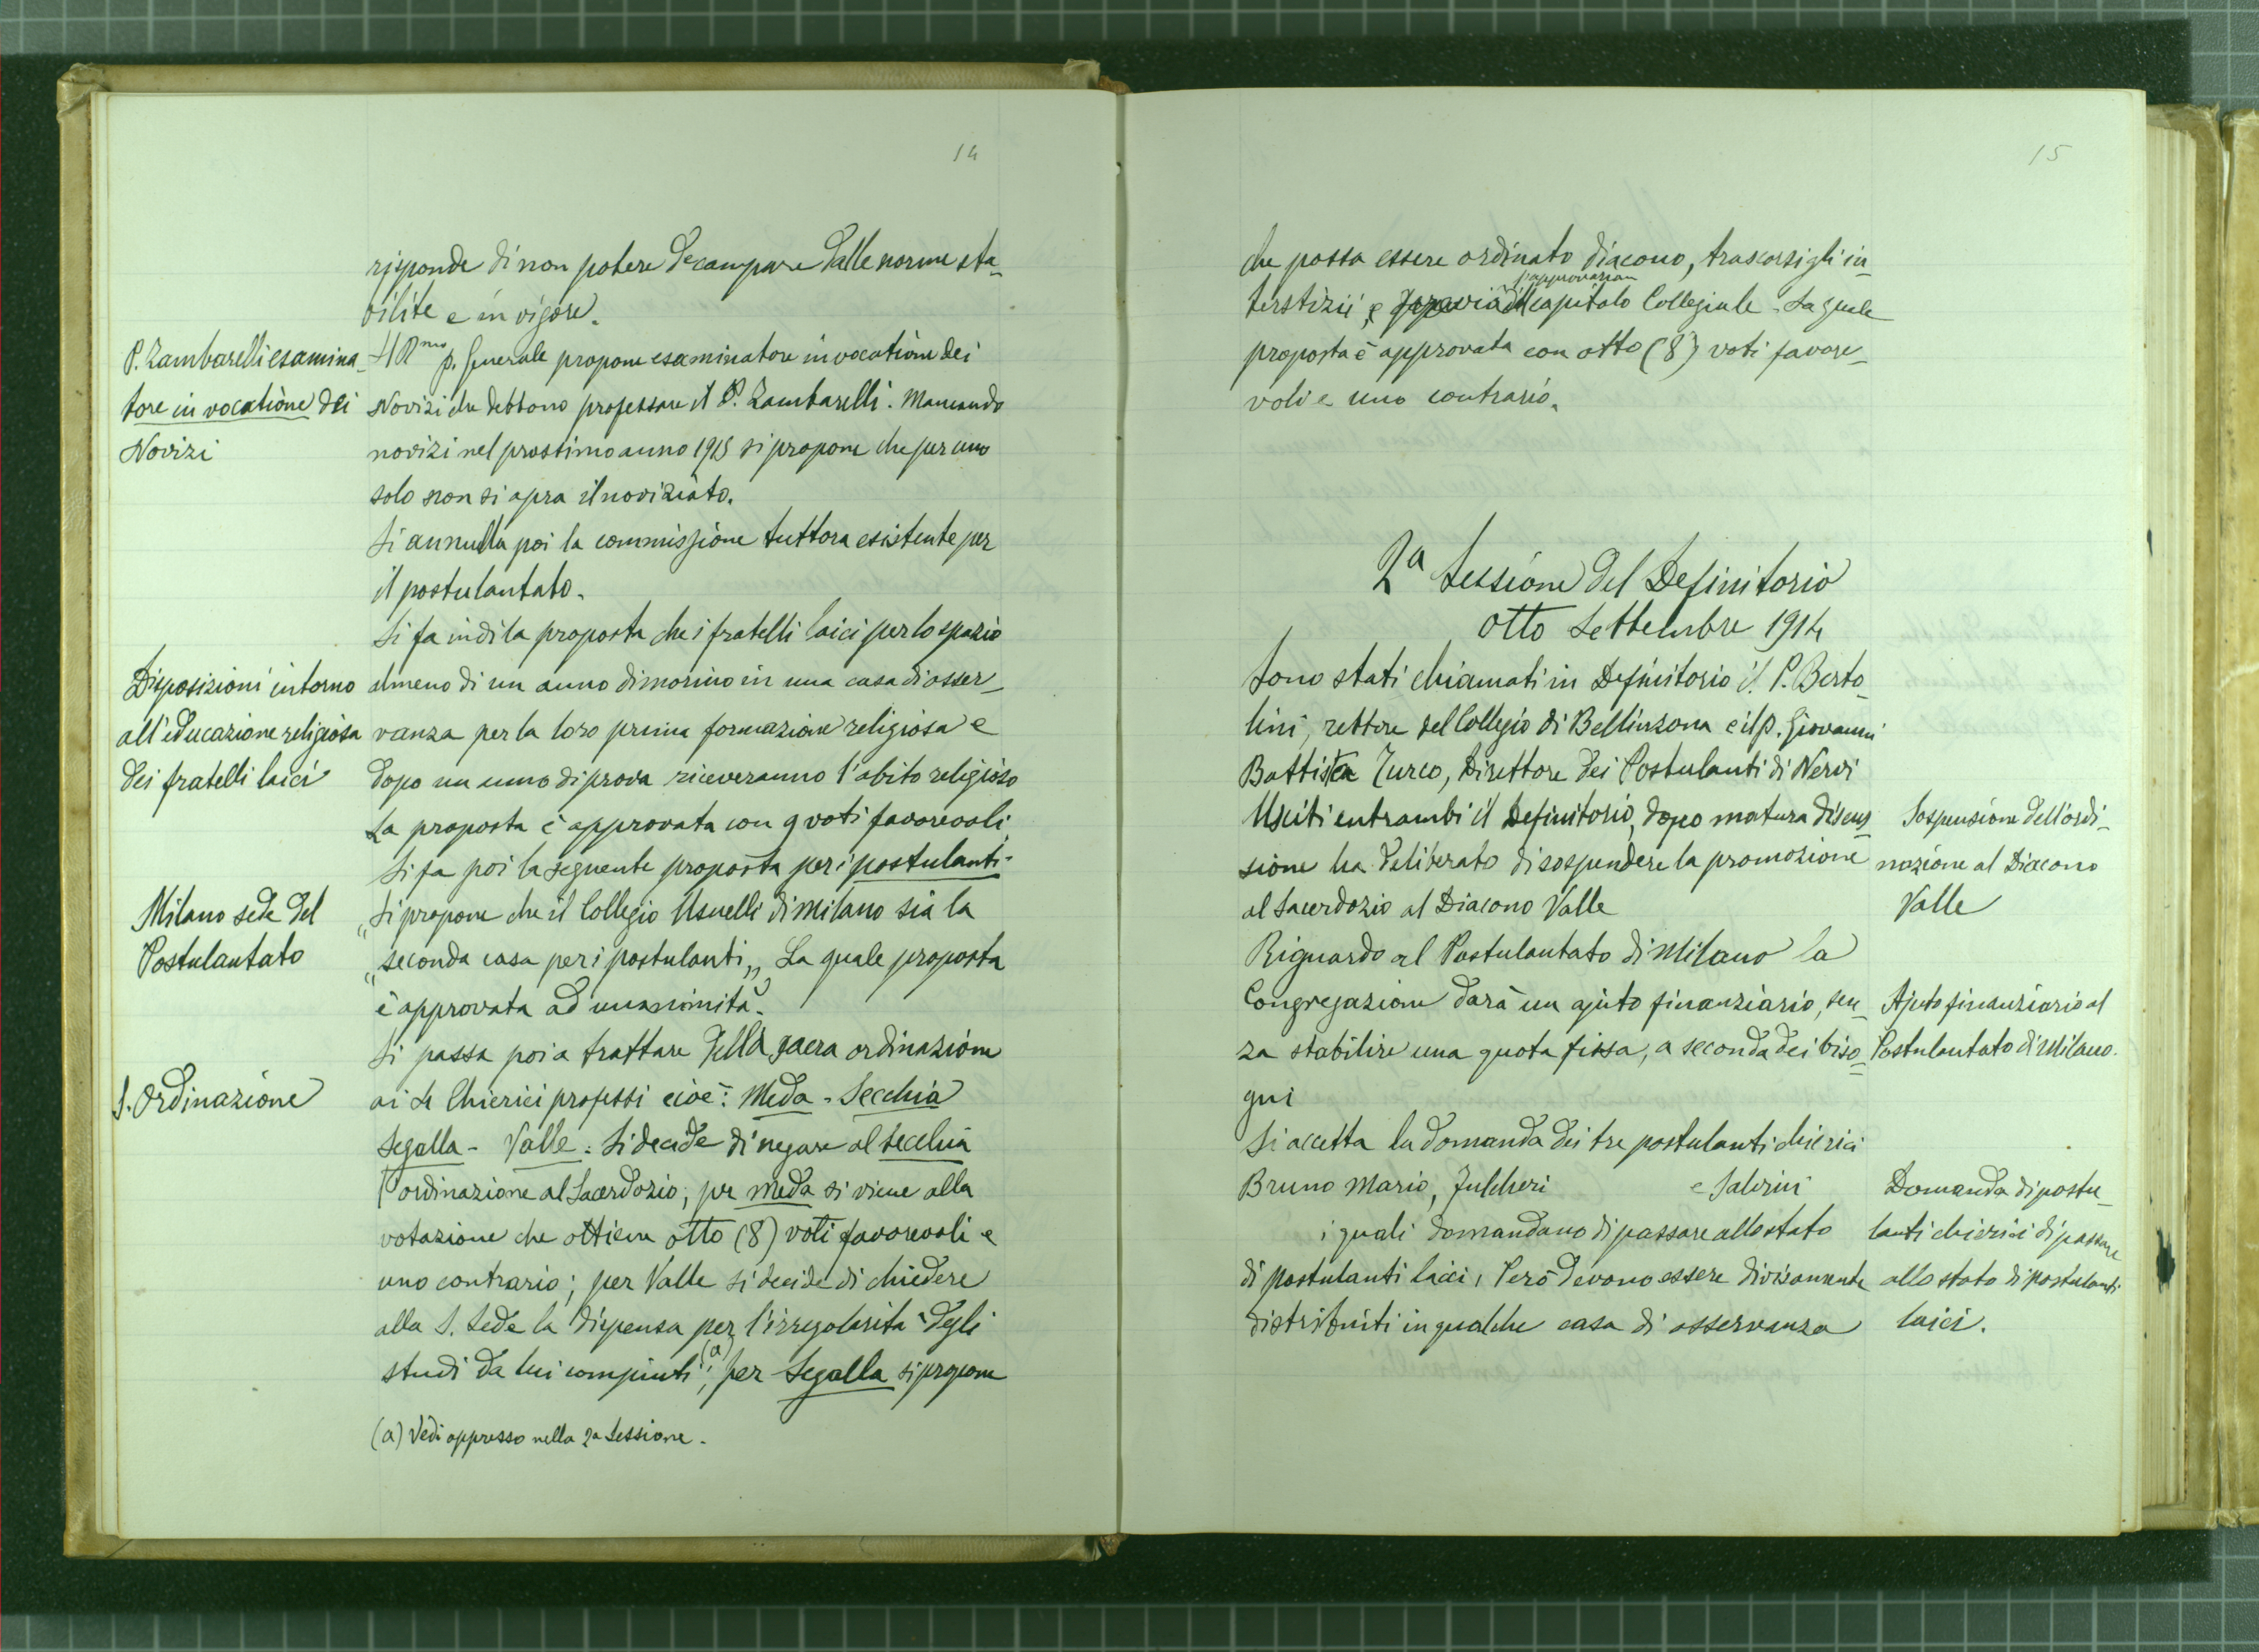 14
risponde di non potere decampare dalle norme sta-
bilite e in vigore.
P. Zambarelli esamina-
tore in vocatione dei
Novizi
Il R.mo p. Generale propone esaminatore in vocatione dei
Novizi che debbono professare il P. Zambarelli. Mancando
novizi nel prossimo anno 1915 si propone che per uno
solo non si apra il noviziato.
Si annulla poi la commissione tuttora esistente per
il postulantato.
Si fa indi la proposta che i fratelli laici per lo spazio
Disposizioni intorno
all'educazione religiosa
dei fratelli laici
almeno di un anno dimorino in una casa di osser-
vanza per la loro prima formazione religiosa e
dopo un anno di prova riceveranno l'abito religioso
La proposta è approvata con 9 voti favorevoli
Si fa poi la seguente proposta per i postulanti-
Milano sede del
Postulantato
"Si propone che il Collegio Usuelli di Milano sia la
"seconda casa per i postulanti„ La quale proposta
è approvata ad unanimità.
Si passa poi a trattare della sacra ordinazione
S. Ordinazione
ai 4 Chierici professi cioè: Meda - Secchia
Segalla - Valle: Si decide di negare al Secchia
l'ordinazione al Sacerdozio; per Meda si viene alla
votazione che ottiene otto (8) voti favorevoli e
uno contrario; per Valle si decide di chiedere
alla S. Sede la dispensa per l'irregolarità degli
studi da lui compiuti (a); per Segalla si propone
(a) Vedi appresso nella 2a Sessione.
15
che possa essere ordinato diacono, trascorsi gli in-
l'approvazion
terstizii, e previa del capitolo Collegiale. La quale
proposta è approvata con otto (8) voti favore-
voli e uno contrario.
2a Sessione del Definitorio
otto Settembre 1914
Sono stati chiamati in Definitorio il P. Berto-
lini, rettore del Collegio di Bellinzona e il p. Giovanni
Battista Turco, Direttore dei Postulanti di Nervi
Usciti entrambi il Definitorio, dopo matura discus-
sione ha deliberato di sospendere la promozione
al Sacerdozio al Diacono Valle
Sospensione dell'ordi-
nazione al Diacono
Valle
Riguardo al Postulantato di Milano la
Congregazione darà un ajuto finanziario, sen-
za stabilire una quota fissa, a seconda dei biso-
gni
Ajuto finanziario al
Postulantato di Milano.
Si accetta la domanda dei tre postulanti chierici
Bruno Mario, Fulcheri e Salvini
i quali domandano di passare allo stato
di postulanti laici, Però devono essere divisamente
distribuiti in qualche casa di osservanza
Domanda di postu-
lanti chierici di passare
allo stato di postulanti
laici.